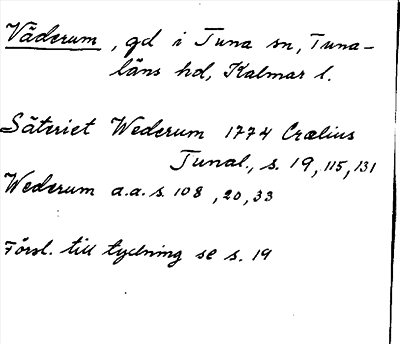 Väderum, gd i Tuna sn, Tuna-
läns hd, Kalmar l.
Säteriet Wederum 1774 Crælius
Tunal., s. 19, 115, 131
Wederum a.a. s. 108, 20, 33
Försl. till tydning se s. 19